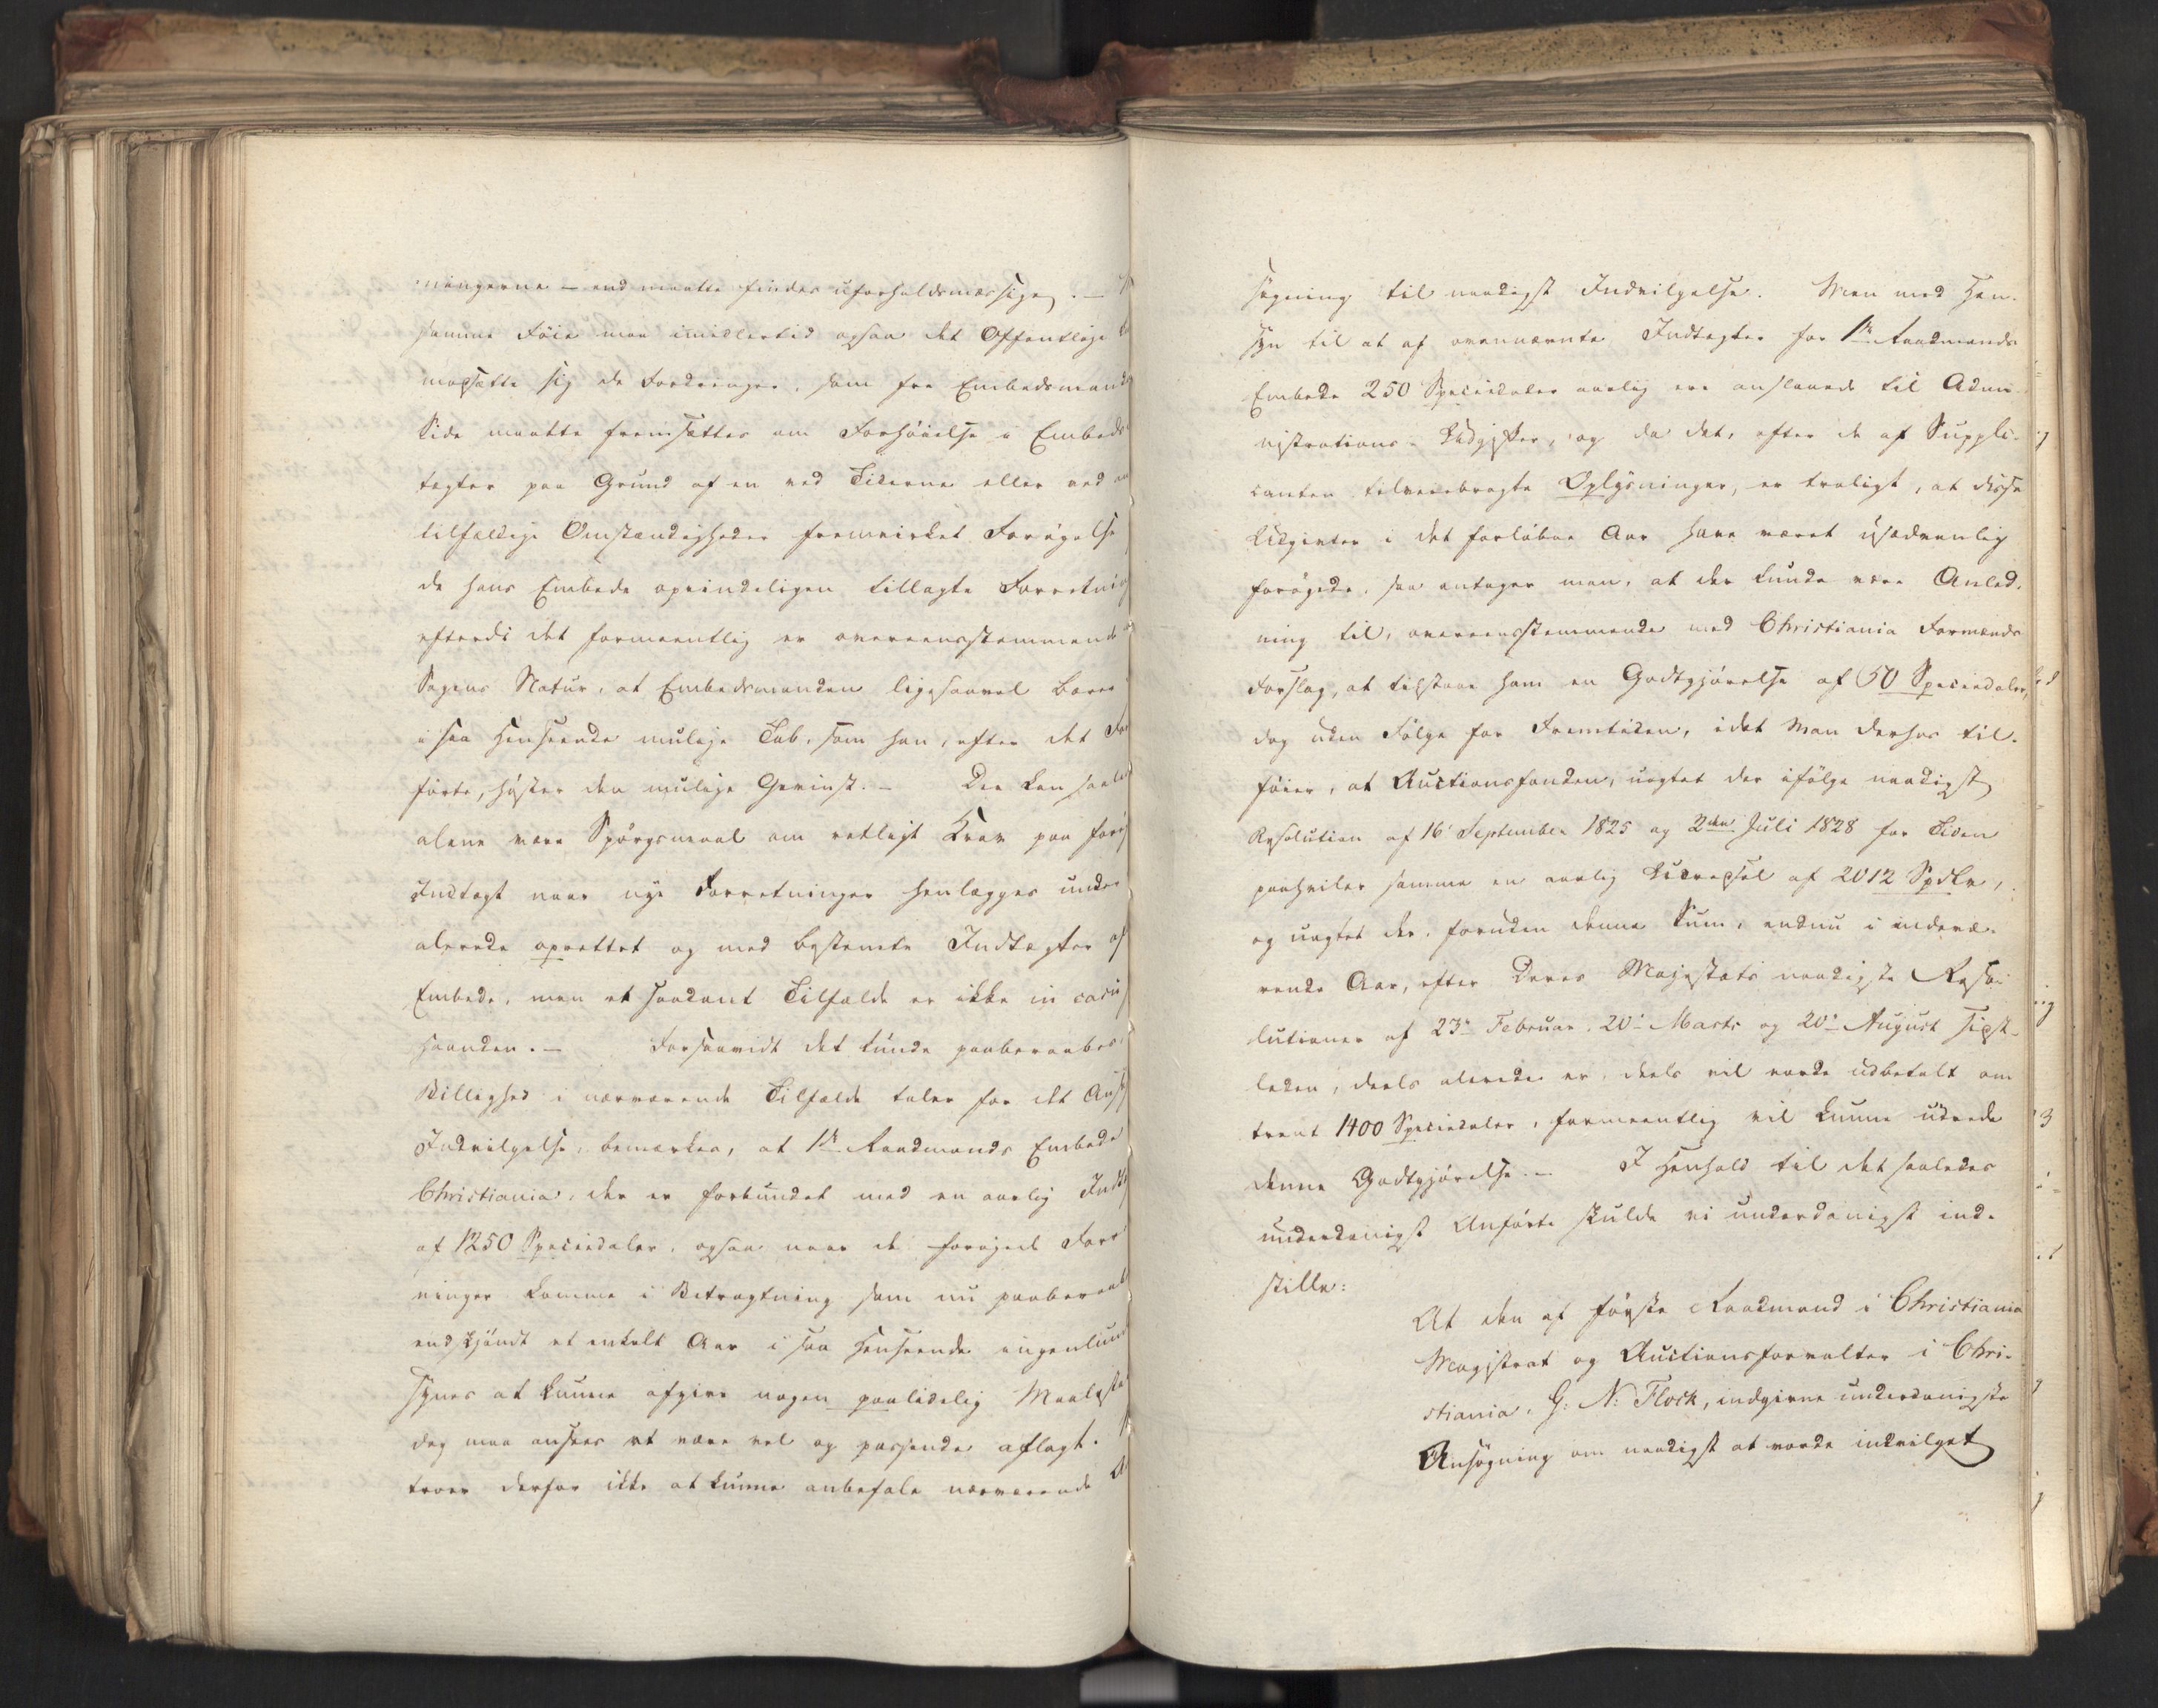 ningerne – end maatte findes uforholdsmæssige. –
samme Føie maa imidlertid ogsaa det Offentlige
modsætte sig de Fordringer, som fra Embedsmand
Side maatte fremsættes om Forhøielse i Embeds
tægter paa Grund af en ved Tiderne eller ved
tilfældige Omstændigheder fremvirket Forøgelse
de hans Embede oprindeligen tillagte Forretnin
efterdi det formeentlig er overeensstemmende
Sagens Natur, at Embedsmanden ligesaavel bærer
i saa Henseende mulige Tab, som han, efter det
førte, høster den mulige Gevinst. – Der kan saale
alene være Spørgsmaal om retligt Krav paa forø
Indtægt naar nye Forretninger henlægges under
allerede oprettet og med bestemte Indtægter
Embede, men et saadant Tilfælde er ikke in casu
Haanden. – Forsaavidt det kunde paaberaabes,
Billighed i nærværende Tilfælde taler for det
Indvilgelse, bemærkes, at 1ste Raadmands Embede
Christiania, der er forbundet med en aarlig Indt
af 1250 Speciedaler, ogsaa naar de forøgede Forr
ninger komme i Betragtning som nu paaberaab
endskjøndt et enkelt Aar i saa Henseende ingenlund
synes at kunne afgive nogen paalidelig Maalesto
dog maa ansees at være vel og passende aflagt.
troer derfor ikke at kunne anbefale nærværende
søgning til naadigst Indvilgelse. Men med Hen-
syn til at af ovennævnte Indtægter for 1ste Raadmands
Embede 250 Speciedaler aarlig ere anslaaede til Admi-
nistrations-Udgifter, og da det, efter de af Suppli-
canten tilveiebragte Oplysninger, er troligt, at disse
Udgivter i det forløbne Aar have været usædvanlig
forøgede, saa antager man, at der kunde være Anled-
ning til, overeensstemmende med Christiania Formænds
Forslag, at tilstaae ham en Godtgjørelse af 50 Speciedaler,
dog uden Følge for Fremtiden, idet Man derhos til-
føier, at Auctionsfonden, uagtet der ifølge naadigst
Resolution af 16 September 1825 og 2den Juli 1828 for Tiden
paahviler samme en aarlig Udredsel af 2012 Spdlr,
og uagtet der, foruden denne Sum, endnu i indevæ-
rende Aar, efter Deres Majestæts naadigste Reso-
lutioner af 23. Februar, 20. Marts og 20. August sidst-
leden, deels allerede er, deels vil vorde udbetalt om
trent 1400 Speciedaler, formeentlig vil kunne udrede
denne Godtgjørelse. – I Henhold til det saaledes
underdanigst Anførte skulde vi underdanigst ind-
stille:
At den af første Raadmand i Christiania
Magistrat og Auctionsforvalter i Chri-
stiania, G: N: Flock, indgivne underdanigste
Ansøgning om naadigst at vorde indvilget